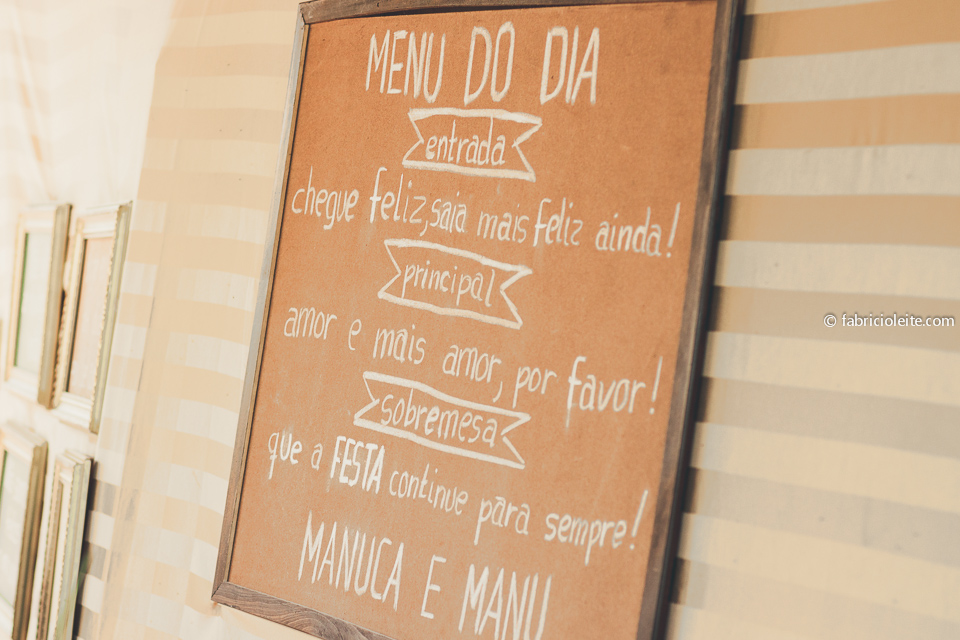 MENU DO DIA
entrada
chegue feliz, saia mais feliz ainda!
principal
amor e mais amor, por favor!
sobremesa
que a FESTA continue para sempre!
MANUCA E MANU
© fabricioleite.com